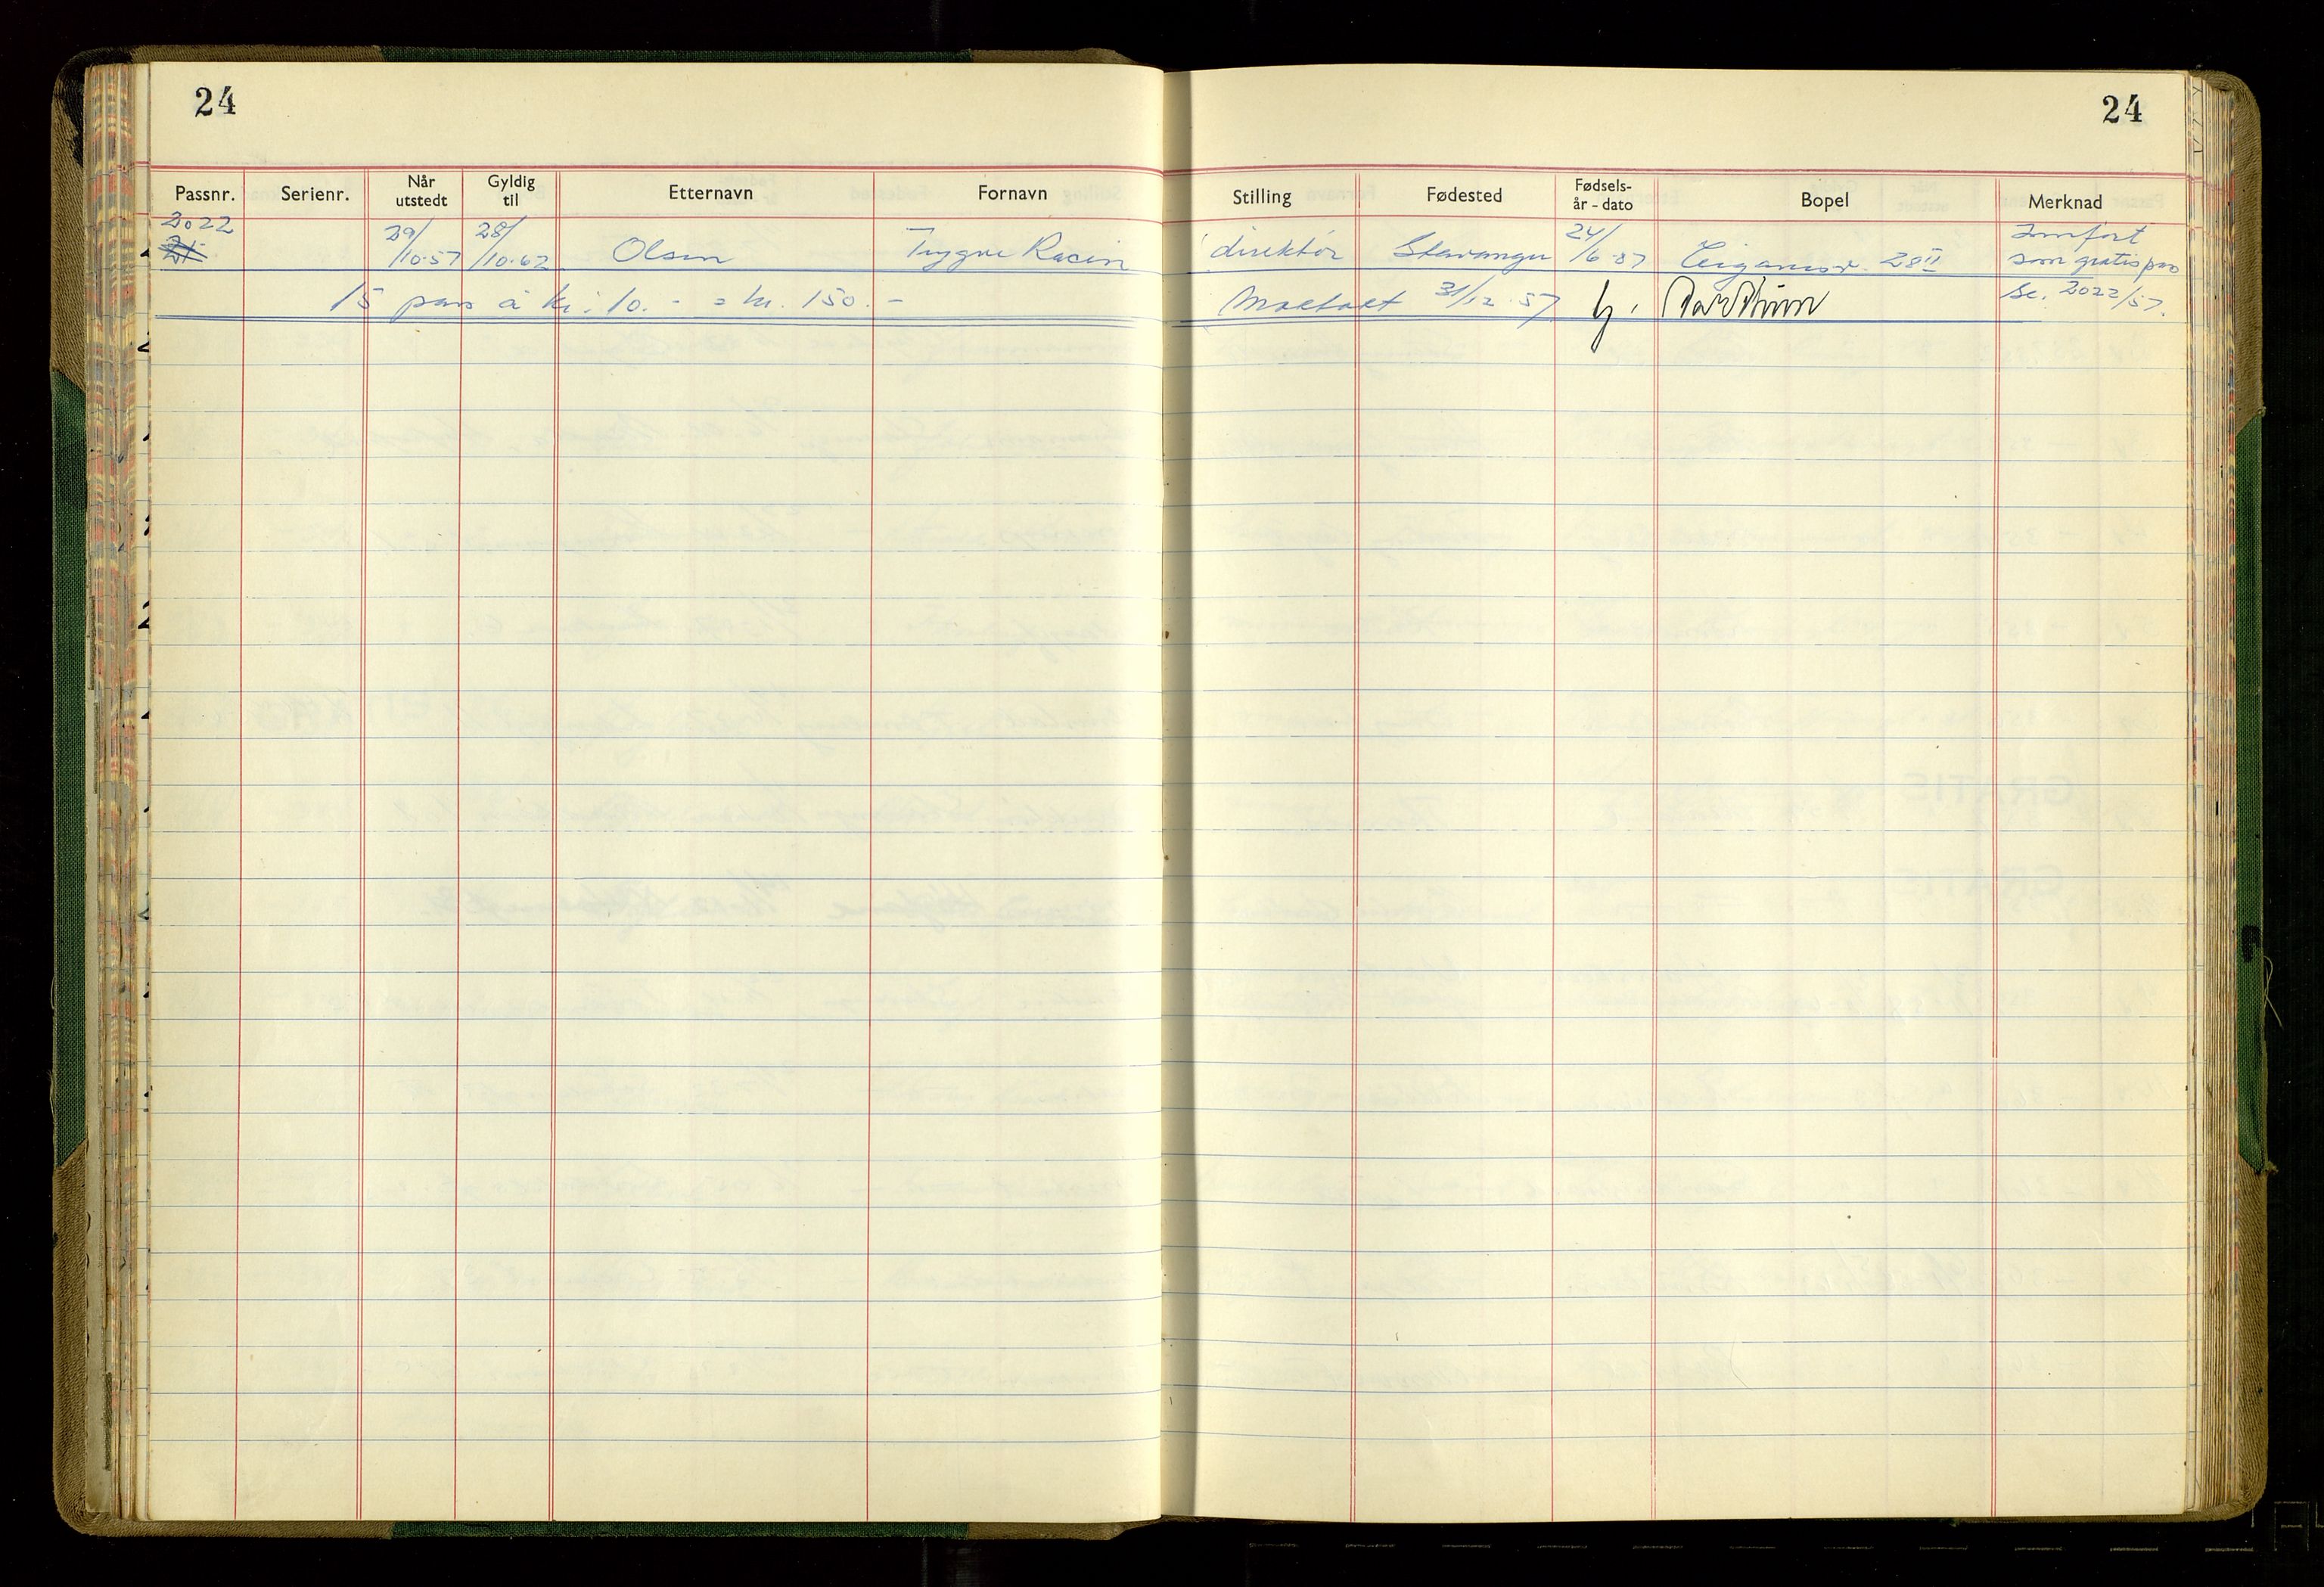 24
24
Passnr. Serienr. Når utstedt Gyldig til Etternavn Fornavn Stilling Fødested Fødsels- år - dato Bopel Merknad
2022 29/10-57 28/10-62 Olsen Trygve direktör Stavanger 24/6-87 28 II
som gratispass
15 pass à kr. 10.- = kr. 150.- Mottatt 31/12-57 Se. 2022/57.